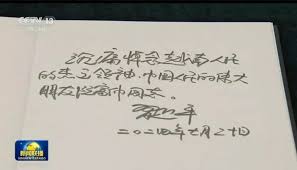 CCTV 13
沉痛悼念越南人民
的杰出领袖、中国人民的伟大
朋友阮富仲同志。
习近平
二〇二四年七月二十日
新闻联播